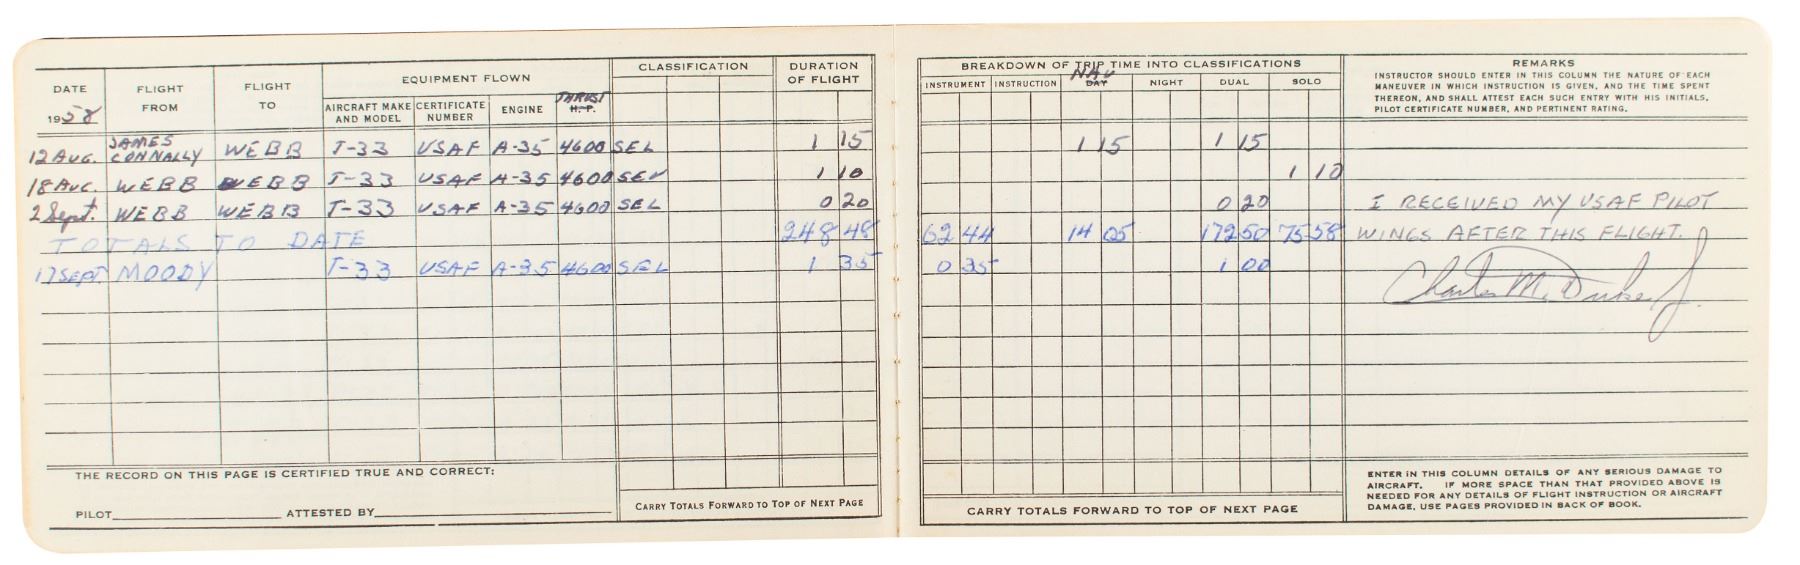 DATE
1958
FLIGHT
FROM
FLIGHT
TO
EQUIPMENT FLOWN
AIRCRAFT MAKE
AND MODEL
CERTIFICATE
NUMBER
ENGINE
THRUST
H.P.
CLASSIFICATION
DURATION
OF FLIGHT
12 AUG. JAMES CONNALLY WEBB T-33 USAF A-35 4600 SEL 1 15
18 AUG. WEBB WEBB T-33 USAF A-35 4600 SEL 1 10
2 Sept. WEBB WEBB T-33 USAF A-35 4600 SEL 0 20
TOTALS TO DATE 248 48
17 SEPT. MOODY T-33 USAF A-35 4600 SEL 1 35
THE RECORD ON THIS PAGE IS CERTIFIED TRUE AND CORRECT:
PILOT ATTESTED BY
CARRY TOTALS FORWARD TO TOP OF NEXT PAGE
BREAKDOWN OF TRIP TIME INTO CLASSIFICATIONS
NAV
INSTRUMENT INSTRUCTION DAY NIGHT DUAL SOLO
REMARKS
INSTRUCTOR SHOULD ENTER IN THIS COLUMN THE NATURE OF EACH
MANEUVER IN WHICH INSTRUCTION IS GIVEN, AND THE TIME SPENT
THEREON, AND SHALL ATTEST EACH SUCH ENTRY WITH HIS INITIALS,
PILOT CERTIFICATE NUMBER, AND PERTINENT RATING.
1 15 1 15
1 10
0 20 I RECEIVED MY USAF PILOT
62 44 14 05 172 50 75 58 WINGS AFTER THIS FLIGHT.
0 35 1 00
Charles M. Duke Jr.
CARRY TOTALS FORWARD TO TOP OF NEXT PAGE
ENTER IN THIS COLUMN DETAILS OF ANY SERIOUS DAMAGE TO
AIRCRAFT. IF MORE SPACE THAN THAT PROVIDED ABOVE IS
NEEDED FOR ANY DETAILS OF FLIGHT INSTRUCTION OR AIRCRAFT
DAMAGE, USE PAGES PROVIDED IN BACK OF BOOK.